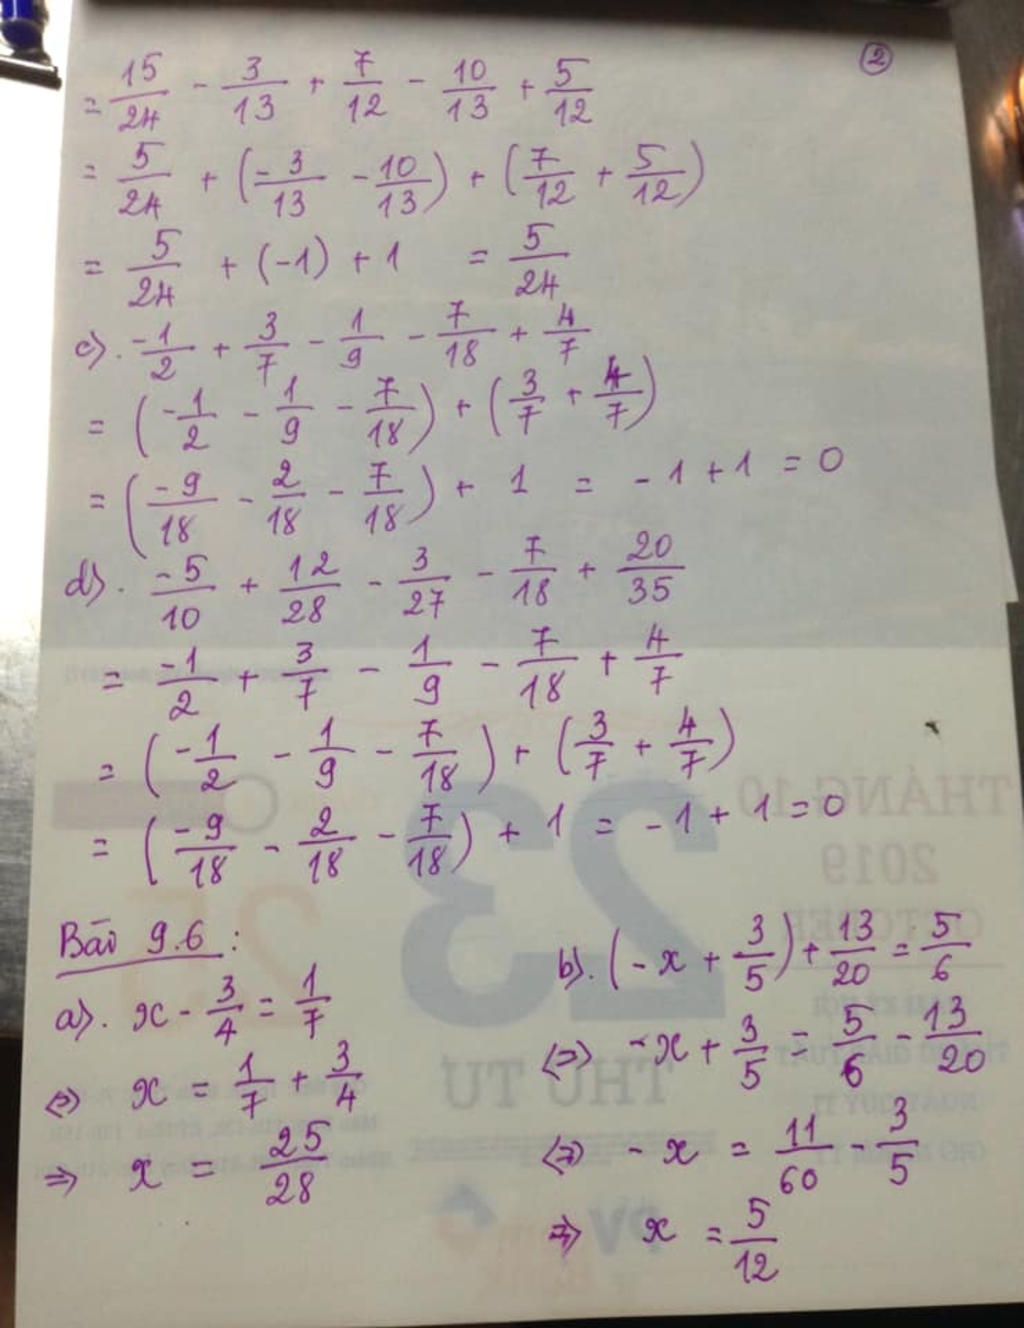 ②
= 15/24 - 3/13 + 7/12 - 10/13 + 5/12
= 5/24 + (-3/13 - 10/13) + (7/12 + 5/12)
= 5/24 + (-1) + 1 = 5/24
c). -1/2 + 3/7 - 1/9 - 7/18 + 4/7
= (-1/2 - 1/9 - 7/18) + (3/7 + 4/7)
= (-9/18 - 2/18 - 7/18) + 1 = -1 + 1 = 0
d). -5/10 + 12/28 - 3/27 - 7/18 + 20/35
= -1/2 + 3/7 - 1/9 - 7/18 + 4/7
= (-1/2 - 1/9 - 7/18) + (3/7 + 4/7)
= (-9/18 - 2/18 - 7/18) + 1 = -1 + 1 = 0
Bài 9.6 :
a). x - 3/4 = 1/7
⇔ x = 1/7 + 3/4
⇒ x = 25/28
b). (-x + 3/5) + 13/20 = 5/6
⇔ -x + 3/5 = 5/6 - 13/20
⇔ -x = 11/60 - 3/5
⇒ x = 5/12
THÁNG 10
2019
OCTOBER
23
25
THỨ TƯ
PV